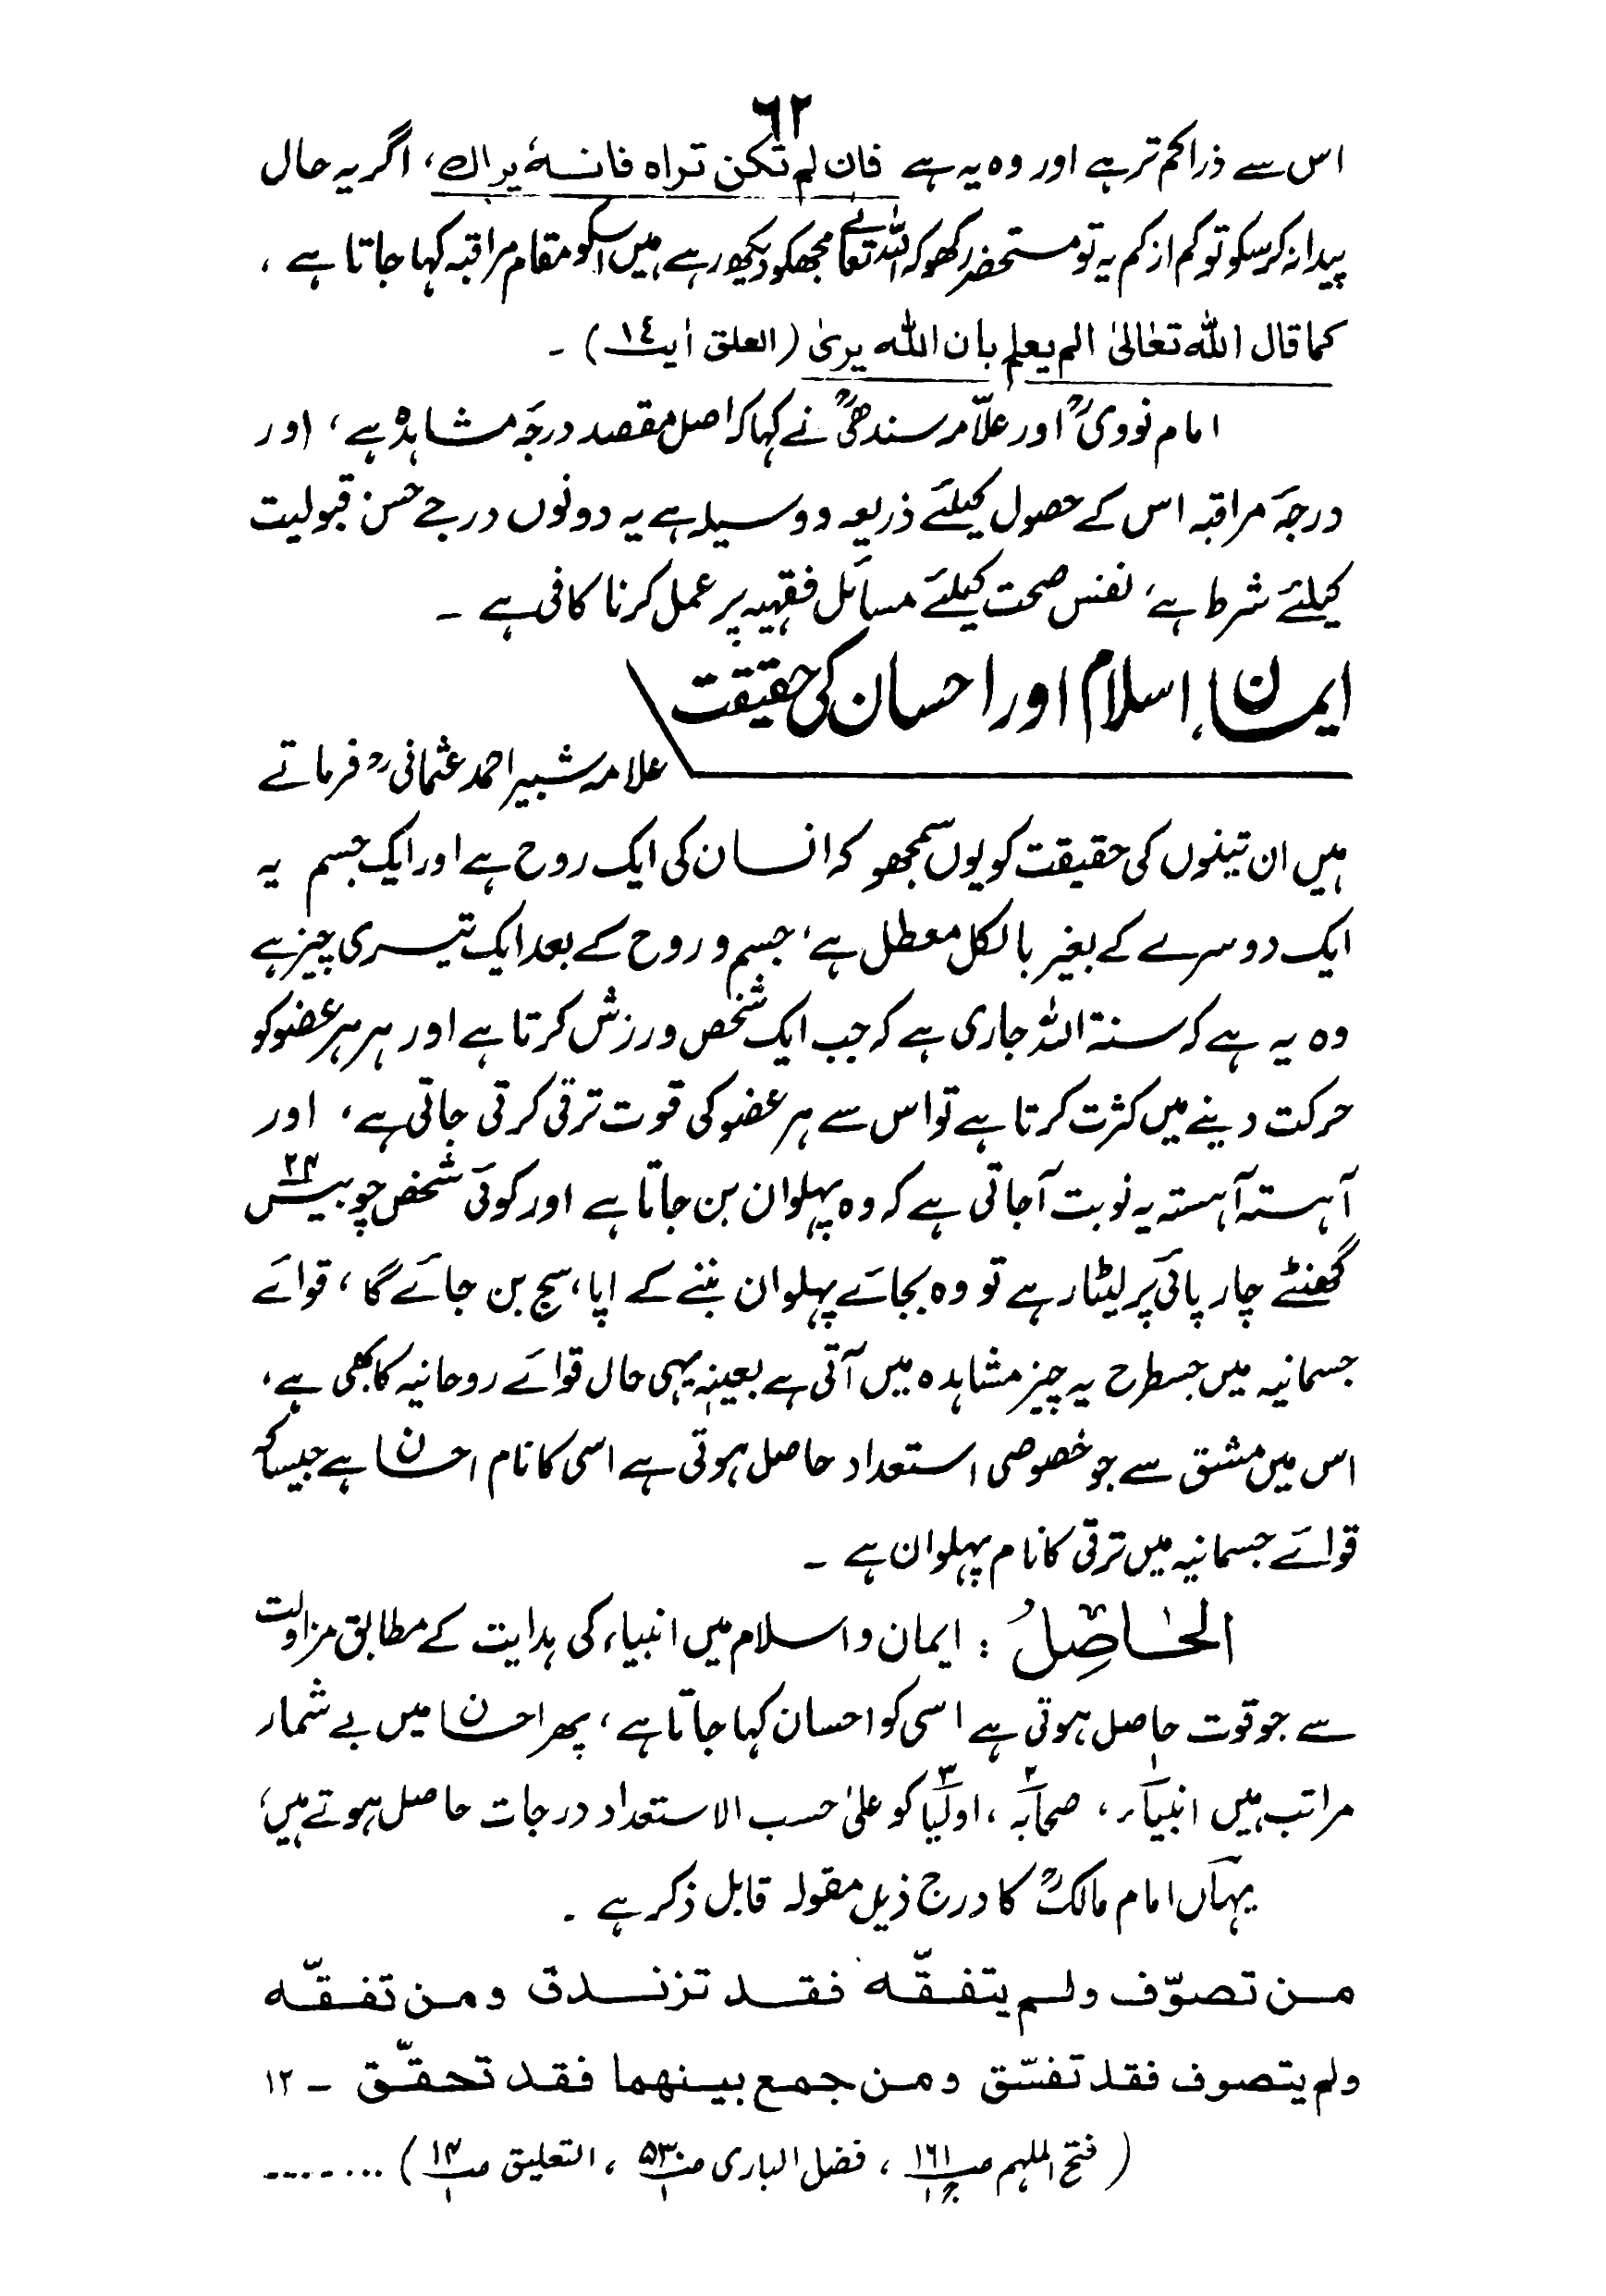 ٦٢
اس سے ذرا کم تر ہے اور وہ یہ ہے فان لم تکن تراہ فانہٗ یراك، اگر یہ حال
پیدا نہ کرسکو تو کم از کم یہ تو مستحضر رکھو کہ اللہ تعالےٰ مجھکو دیکھ رہے ہیں اسکو مقام مراقبہ کہا جاتا ہے ،
کما قال اللہ تعالیٰ الم یعلم بان اللہ یریٰ (العلق اٰیت ١٤) ۔
امام نوویؒ اور علّامہ سندھیؒ نے کہا کہ اصل مقصد درجۂ مشاہدہ ہے، اور
درجۂ مراقبہ اس کے حصول کیلئے ذریعہ و وسیلہ ہے یہ دونوں درجے حسن قبولیت
کیلئے شرط ہے، نفس صحت کیلئے مسائل فقہیہ پر عمل کرنا کافی ہے ۔
ایمان، اسلام اور احسان کی حقیقت
علامہ شبیر احمد عثمانیؒ فرماتے
ہیں ان تینوں کی حقیقت کو یوں سمجھو کہ انسان کی ایک روح ہے اور ایک جسم یہ
ایک دوسرے کے بغیر بالکل معطل ہے، جسم و روح کے بعد ایک تیسری چیز ہے
وہ یہ ہے کہ سنۃ اللہ جاری ہے کہ جب ایک شخص ورزش کرتا ہے اور ہر ہر عضو کو
حرکت دینے میں کثرت کرتا ہے تو اس سے ہر عضو کی قوت ترقی کرتی جاتی ہے، اور
آہستہ آہستہ یہ نوبت آجاتی ہے کہ وہ پہلوان بن جاتا ہے اور کوئی شخص چوبیس ۲۴
گھنٹے چار پائی پر لیٹا رہے تو وہ بجائے پہلوان بننے کے اپاہج بن جائے گا، قوائے
جسمانیہ میں جسطرح یہ چیز مشاہدہ میں آتی ہے بعینہٖ یہی حال قوائے روحانیہ کا بھی ہے،
اس میں مشق سے جو خصوصی استعداد حاصل ہوتی ہے اسی کا نام احسان ہے جیسا کہ
قوائے جسمانیہ میں ترقی کا نام پہلوان ہے ۔
الحاصل : ایمان و اسلام میں انبیاء کی ہدایت کے مطابق مزاولت
سے جو قوت حاصل ہوتی ہے اسی کو احسان کہا جاتا ہے، پھر احسان میں بے شمار
مراتب ہیں انبیاء۱، صحابہ۲، اولیا۳ کو علیٰ حسب الاستعداد درجات حاصل ہوتے ہیں،
یہاں امام مالکؒ کا درج ذیل مقولہ قابل ذکر ہے ۔
من تصوّف ولم یتفقّہ فقد تزندق ومن تفقّہ
ولم یتصوف فقد تفسّق ومن جمع بینھما فقد تحقّق ۔ ۱۲
( فتح الملہم ص ۱۶۱ ج ۱ ، فضل الباری ص ۵۳۰ ۱ ، التعلیق ص ۱۴ ۱ ) ........